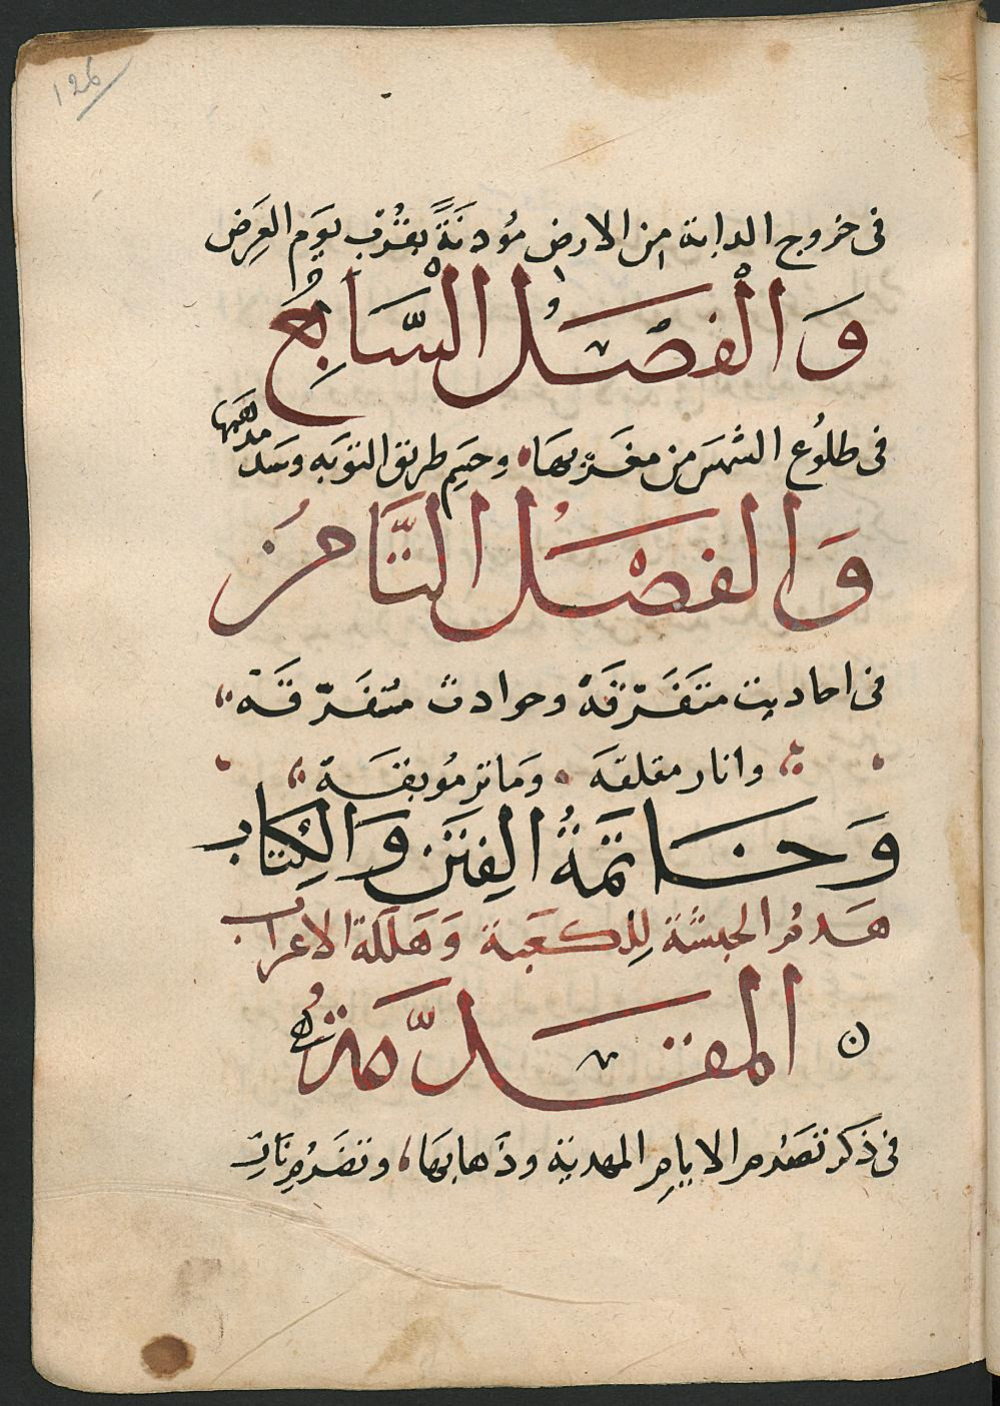 126
فى خروج الدابة من الارض مؤذنةً بقُرب يوم العرض
وَالفصل السّابعُ
فى طلوُع الشمس من مغربها وحسم طريق التوبه وسد مذهبها
وَالفصل الثامن
فى احاديث متفَرّقةَ وحوادث متفرّقة
واثار مقلقة ومآثر موبقة
وَخاتمةُ الفِتن وَالكِتاب
هَدم الحبشة لِلكعَبة وَهَلَكة الاعراب
المقدّمة
فى ذكر تصرم الايام المهدية وذَهابها وتضَرُم نار